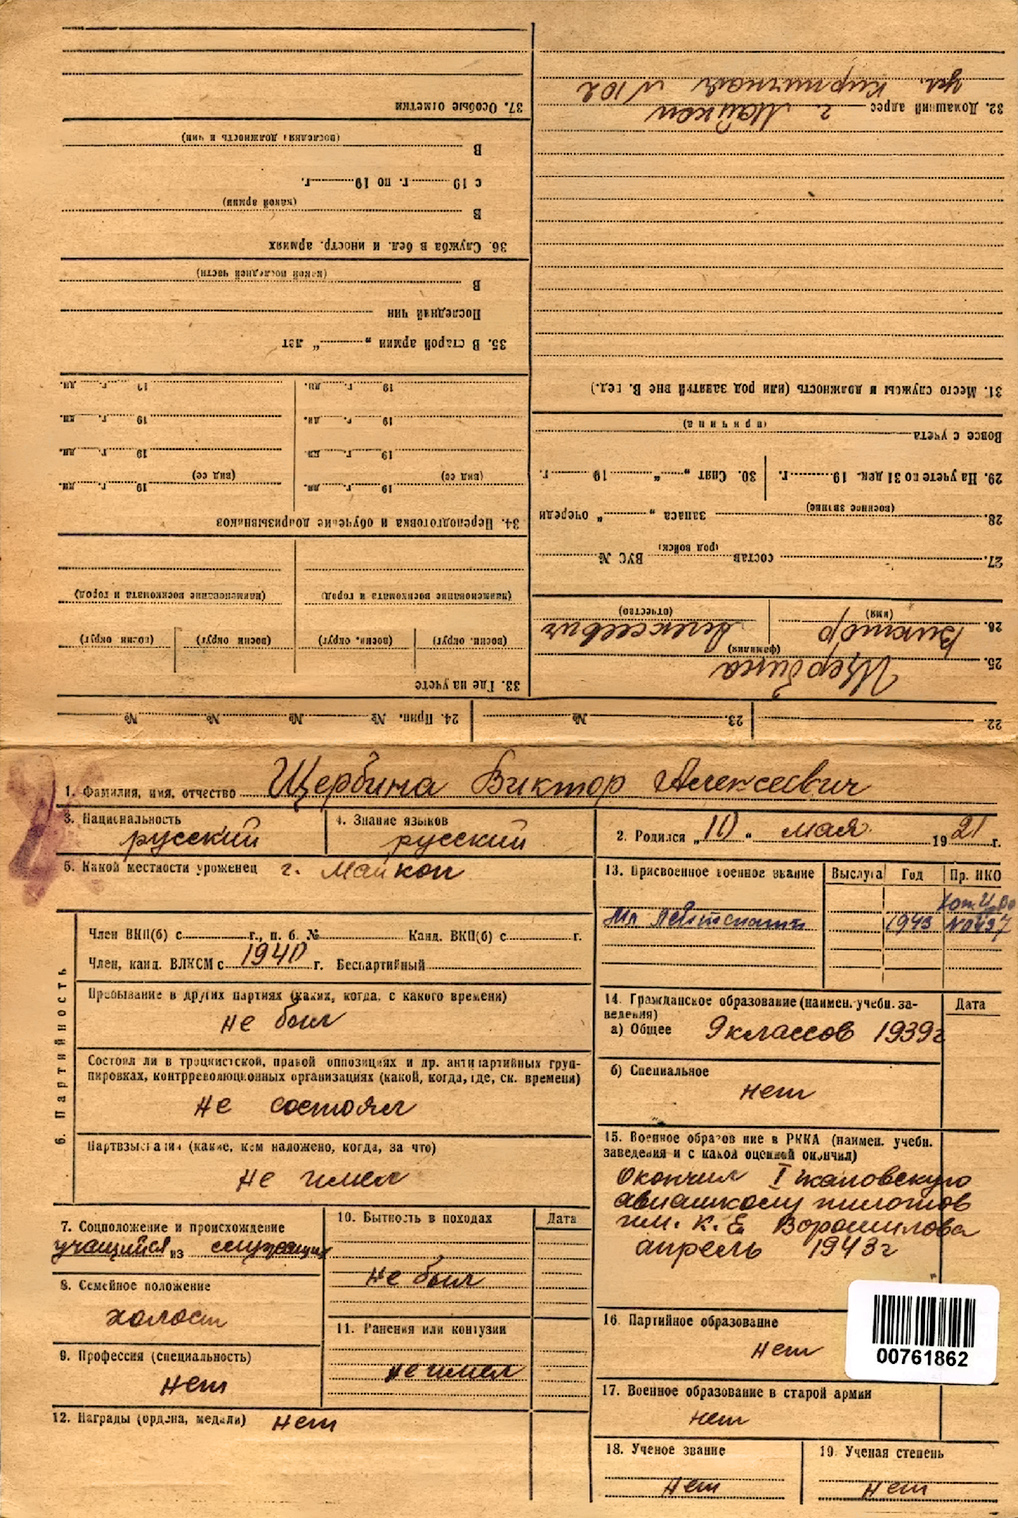 1. Фамилия, имя, отчество Щербина Виктор Алексеевич
3. Национальность русский
4. Знание языков русский
2. Родился „10" мая 1921 г.
5. Какой местности уроженец г. Майкоп
13. Присвоенное военное звание Выслуга Год Пр. НКО
Мл. лейтенант 1943 №0437
6. Партийность
Член ВКП(б) с г., п. б. № Канд. ВКП(б) с г.
Член, канд. ВЛКСМ с 1940 г. Беспартийный
Пребывание в других партиях (каких, когда, с какого времени)
не был
Состоял ли в троцкистской, правой оппозициях и др. антипартийных груп-
пировках, контрреволюционных организациях (какой, когда, где, ск. времени)
не состоял
Партвзыскания (какие, кем наложено, когда, за что)
не имел
7. Соцположение и происхождение
учащийся из служащих
8. Семейное положение
холост
9. Профессия (специальность)
нет
10. Бытность в походах Дата
не был
11. Ранения или контузии
не имел
12. Награды (ордена, медали) нет
14. Гражданское образование (наимен. учебн. за- Дата
ведения)
а) Общее 9 классов 1939г
б) Специальное
нет
15. Военное образование в РККА (наимен. учебн.
заведения и с какой оценкой окончил)
Окончил
авиашколу пилотов
им. К. Е Ворошилова
апрель 1943г
16. Партийное образование
нет
00761862
17. Военное образование в старой армии
нет
18. Ученое звание
нет
19. Ученая степень
нет
22.
23. №
24. Прик. № № № №
25. Щербина
(фамилия)
26. Виктор Алексеевич
(имя) (отчество)
27. состав ВУС №
(род войск)
28. запаса „ " очереди
(военное звание)
29. На учете по 31 дек. 19 г. 30. Снят „ " 19 г.
Вовсе с учета
(причина)
31. Место службы и должность (или род занятий вне В. вед.)
32. Домашний адрес г. Майкоп
ул. Кирпичная №102
33. Где на учете
(воен. округ) (воен. округ) (воен. округ) (воен. округ)
(наименование военкомата и город) (наименование военкомата и город)
34. Переподготовка и обучение допризывников
19 г. дн. 19 г. дн.
(вид ее) (вид ее)
19 г. дн. 19 г. дн.
19 г. дн. 19 г. дн.
19 г. дн. 19 г. дн.
35. В старой армии „ " лет
Последний чин
В
(какой последней части)
36. Служба в бел. и иностр. армиях
В
(какой армии)
с 19 г. по 19 г.
В
(последняя должность и чин)
37. Особые отметки